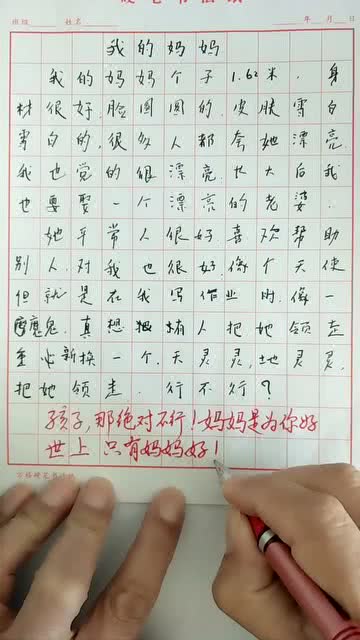 班级 姓名 年 月 日
我的妈妈
我的妈妈个子1.62米,身
材很好,脸圆圆的,皮肤雪白
雪白的,很多人都夸她漂亮,
我也觉的很漂亮,长大后我
也要娶一个漂亮的老婆.
她平常人很好喜欢帮助
别人,对我也很好,像个天使
但就是在我写作业时,像一
魔鬼,真想有人把她领走
重新换一个,天灵灵,地灵灵,
把她领走,行不行?
孩子,那绝对不行!妈妈是为你好
世上只有妈妈好!